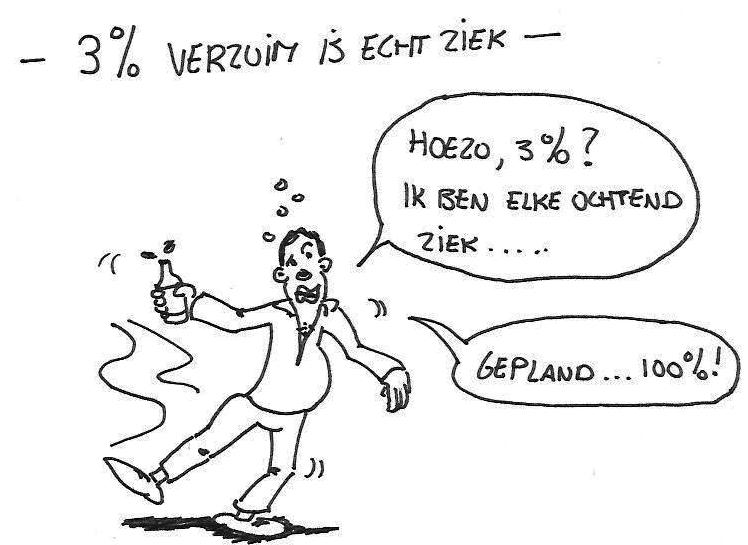 - 3% VERZUIM IS ECHT ZIEK -
HOEZO, 3%?
IK BEN ELKE OCHTEND
ZIEK.....
GEPLAND... 100%!